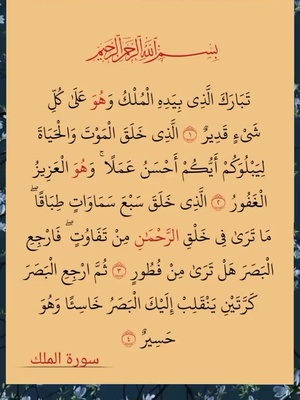 بِسْمِ اللَّهِ الرَّحْمَٰنِ الرَّحِيمِ
تَبَارَكَ الَّذِى بِيَدِهِ الْمُلْكُ وَهُوَ عَلَىٰ كُلِّ
شَىْءٍ قَدِيرٌ ١ الَّذِى خَلَقَ الْمَوْتَ وَالْحَيَاةَ
لِيَبْلُوَكُمْ أَيُّكُمْ أَحْسَنُ عَمَلًا ۚ وَهُوَ الْعَزِيزُ
الْغَفُورُ ٢ الَّذِى خَلَقَ سَبْعَ سَمَاوَاتٍ طِبَاقًا ۖ
مَا تَرَىٰ فِى خَلْقِ الرَّحْمَٰنِ مِنْ تَفَاوُتٍ ۖ فَارْجِعِ
الْبَصَرَ هَلْ تَرَىٰ مِنْ فُطُورٍ ٣ ثُمَّ ارْجِعِ الْبَصَرَ
كَرَّتَيْنِ يَنْقَلِبْ إِلَيْكَ الْبَصَرُ خَاسِئًا وَهُوَ
حَسِيرٌ ٤
سورة الملك